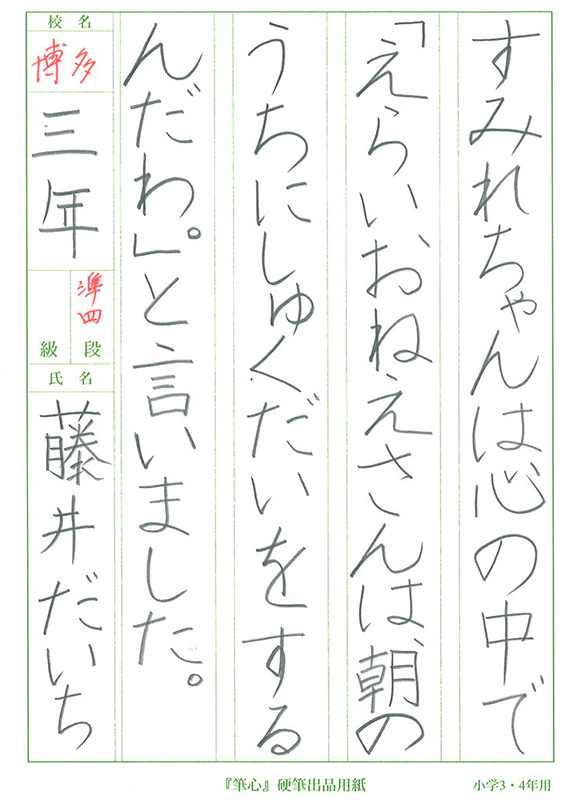 すみれちゃんは心の中で
「えらいおねえさんは、朝の
うちにしゅくだいをする
んだわ。」と言いました。
校名
博多
三年
準四
級 段
氏名
藤井だいち
『筆心』硬筆出品用紙
小学3・4年用